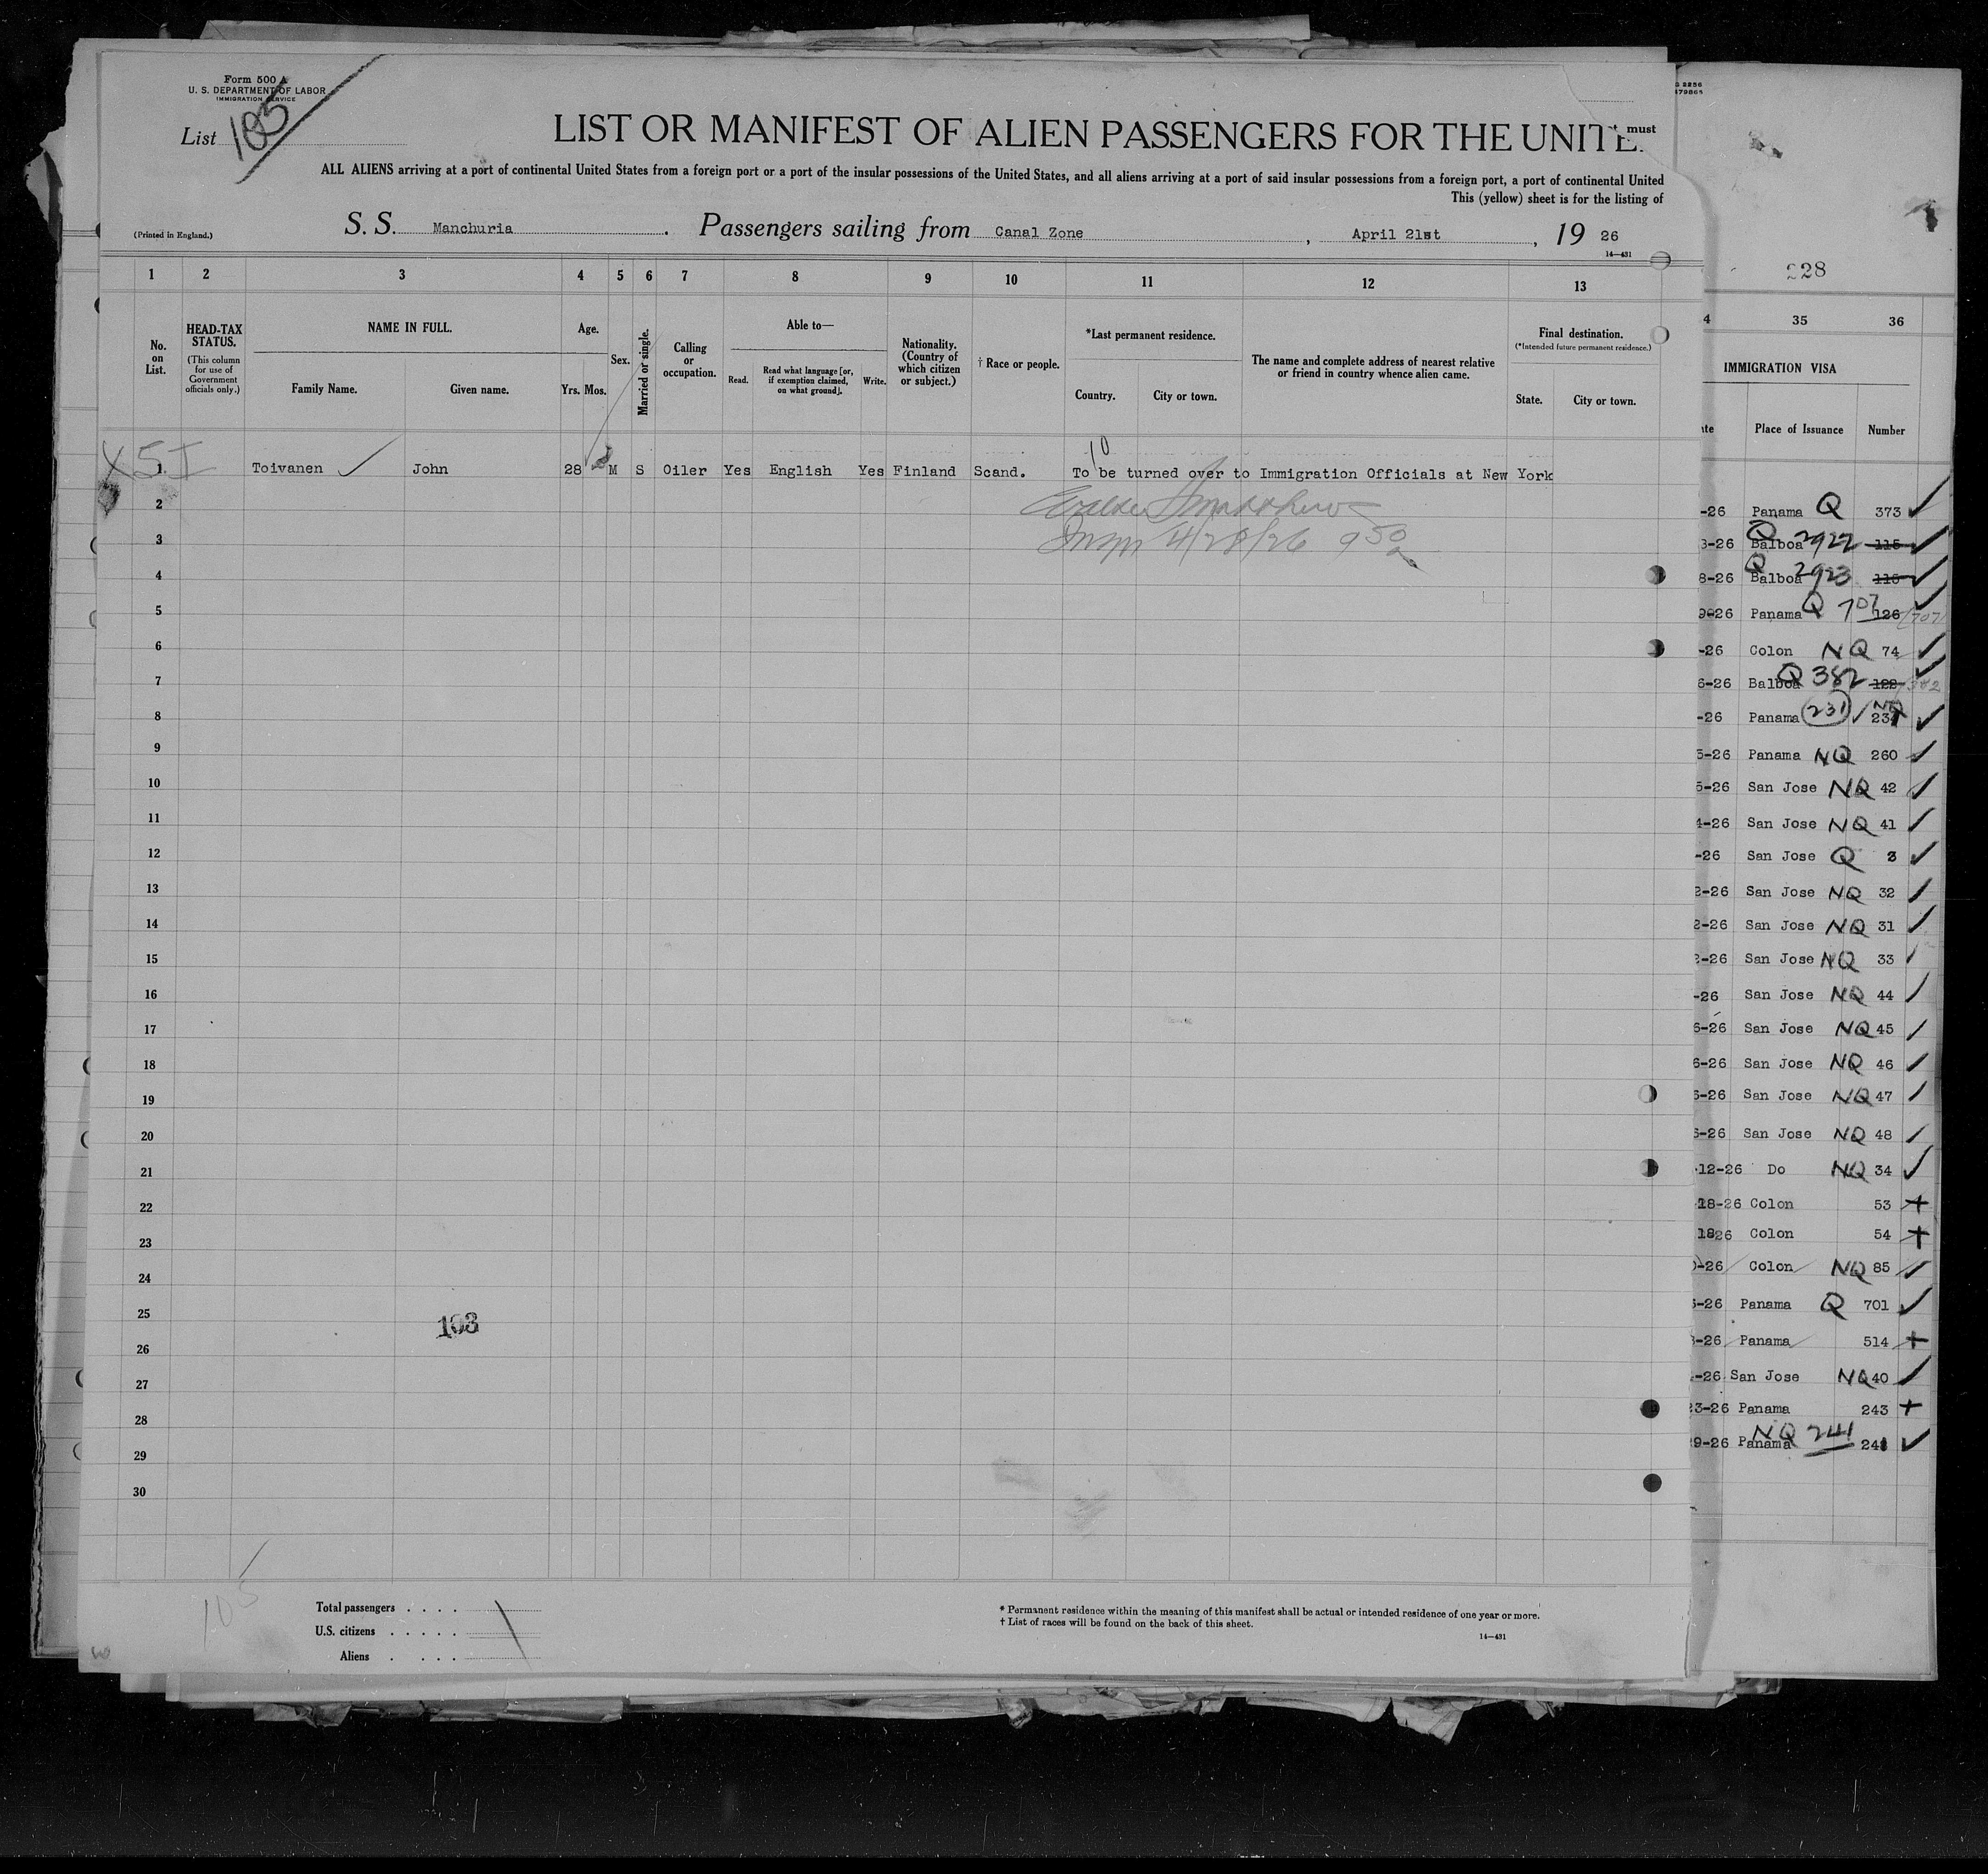 Form 500 A
U. S. DEPARTMENT OF LABOR
IMMIGRATION SERVICE
List 103
LIST OR MANIFEST OF ALIEN PASSENGERS FOR THE UNITE
must
ALL ALIENS arriving at a port of continental United States from a foreign port or a port of the insular possessions of the United States, and all aliens arriving at a port of said insular possessions from a foreign port, a port of continental United
This (yellow) sheet is for the listing of
(Printed in England.)
S. S. Manchuria. Passengers sailing from Canal Zone, April 21st, 19 26
14—431
1 2 3 4 5 6 7 8 9 10 11 12 13
No. on List.
HEAD-TAX STATUS.
(This column for use of Government officials only.)
NAME IN FULL.
Family Name. Given name.
Age.
Yrs. Mos.
Sex.
Married or single.
Calling or occupation.
Able to—
Read. Read what language [or, if exemption claimed, on what ground]. Write.
Nationality. (Country of which citizen or subject.)
† Race or people.
*Last permanent residence.
Country. City or town.
The name and complete address of nearest relative or friend in country whence alien came.
Final destination.
(*Intended future permanent residence.)
State. City or town.
10
1 Toivanen John 28 M S Oiler Yes English Yes Finland Scand. To be turned over to Immigration Officials at New York
2
3 4/28/26 9 50
4
5
6
7
8
9
10
11
12
13
14
15
16
17
18
19
20
21
22
23
24
25
103
26
27
28
29
30
105
Total passengers . . . .
U.S. citizens . . . . .
Aliens . . . .
* Permanent residence within the meaning of this manifest shall be actual or intended residence of one year or more.
† List of races will be found on the back of this sheet.
14—431
2256
79865
228
4 35 36
IMMIGRATION VISA
te Place of Issuance Number
-26 Panama Q 373
3-26 Balboa Q 2922 115
8-26 Balboa Q 2923 116
9-26 Panama Q 707 126 707
-26 Colon NQ 74
6-26 Balboa Q 382 122 382
-26 Panama 231 NQ 231
5-26 Panama NQ 260
5-26 San Jose NQ 42
4-26 San Jose NQ 41
-26 San Jose Q 3
2-26 San Jose NQ 32
2-26 San Jose NQ 31
2-26 San Jose NQ 33
-26 San Jose NQ 44
6-26 San Jose NQ 45
6-26 San Jose NQ 46
6-26 San Jose NQ 47
6-26 San Jose NQ 48
12-26 Do NQ 34
18-26 Colon 53
1826 Colon 54
-26 Colon NQ 85
6-26 Panama Q 701
-26 Panama 514
-26 San Jose NQ 40
23-26 Panama 243
9-26 Panama NQ 241 241